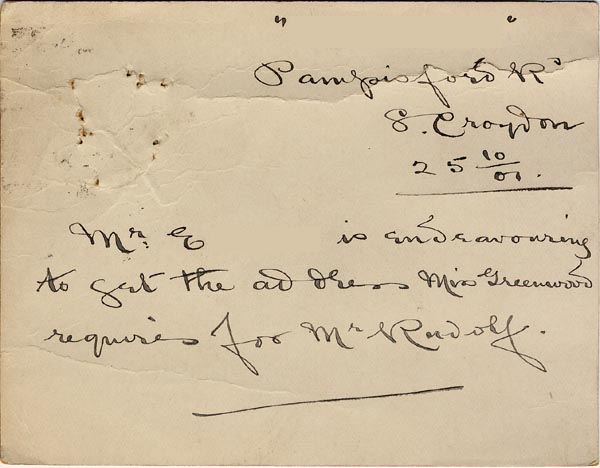 " "
Pampisford Rd
S. Croydon
25 10/01.
Mr. E is endeavouring
to get the address Miss Greenwood
requires for Mr Rudolf.